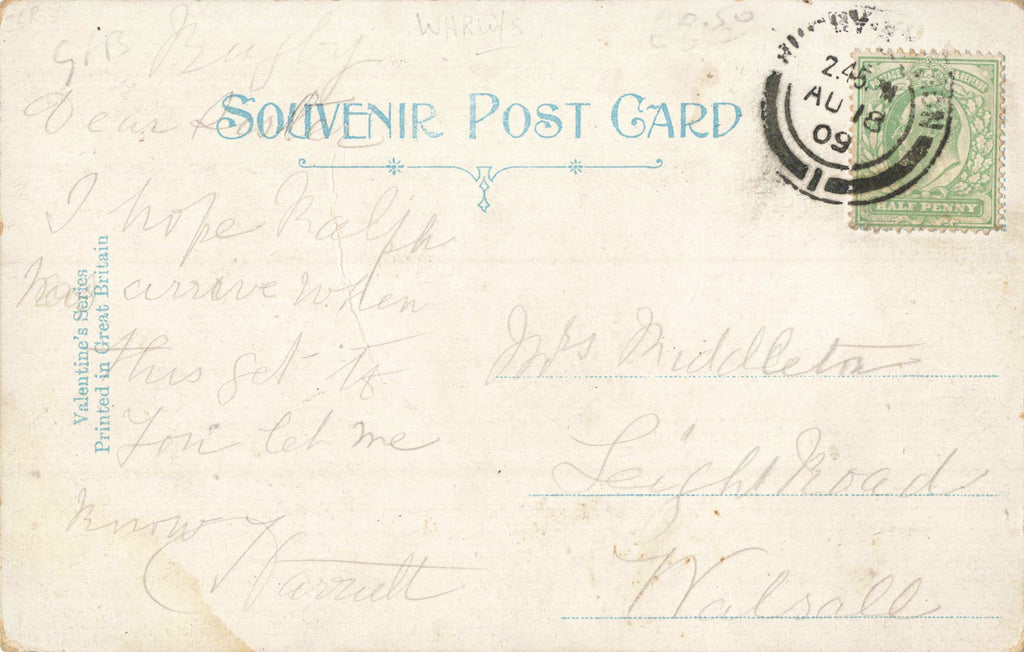 WARWKS
£0.50
GTB Rugby
Dear
SOUVENIR POST CARD
2.45 PM
AU 18
09
1
HALF PENNY
I hope Ralph
has arrive when
this get to
You let me
know
Harriett
Valentine's Series
Printed in Great Britain
Mrs Middleton
Leigh Road
Walsall